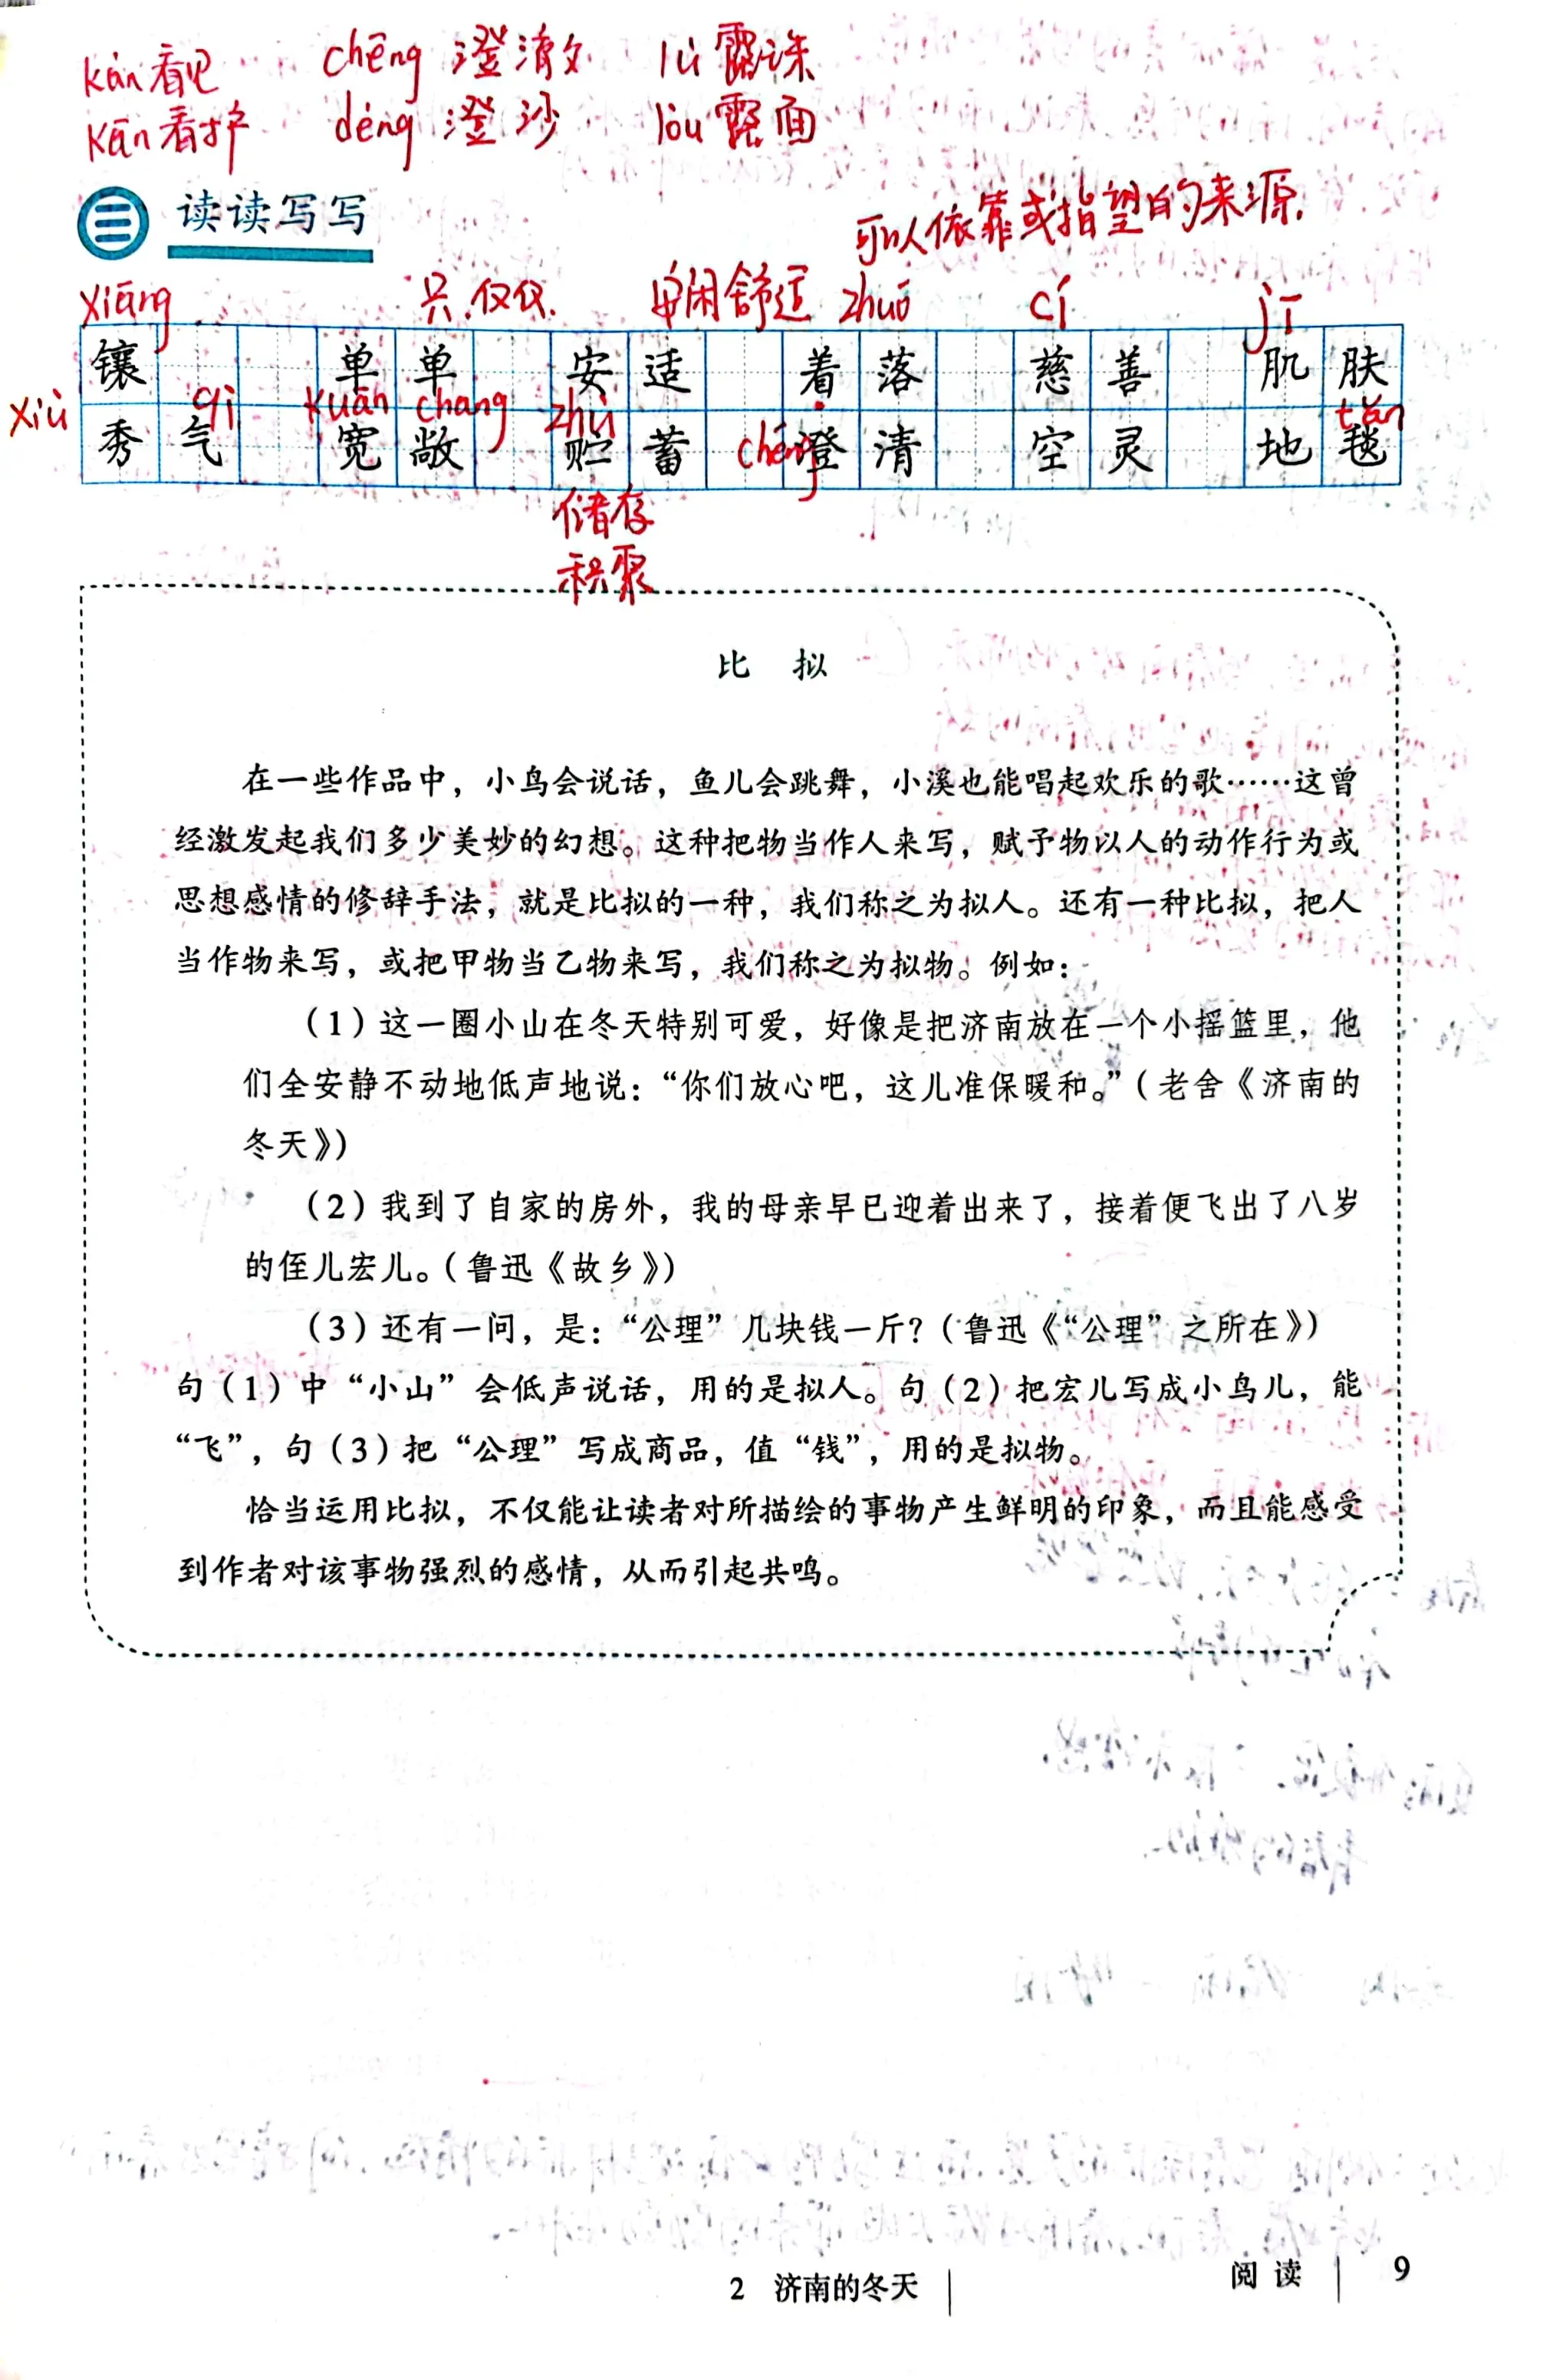 kàn 看见 chéng 澄清 lù 露珠
kān 看护 dèng 澄沙 lòu 露面
读读写写
可以依靠或指望的来源.
xiāng 只.仅仅. 安闲舒适 zhuó cí jī
镶 单单 安适 着落 慈善 肌肤
xiù qì kuān chang zhù chéng tǎn
秀气 宽敞 贮蓄 澄清 空灵 地毯
储存
积聚
比 拟
在一些作品中，小鸟会说话，鱼儿会跳舞，小溪也能唱起欢乐的歌……这曾
经激发起我们多少美妙的幻想。这种把物当作人来写，赋予物以人的动作行为或
思想感情的修辞手法，就是比拟的一种，我们称之为拟人。还有一种比拟，把人
当作物来写，或把甲物当乙物来写，我们称之为拟物。例如：
（1）这一圈小山在冬天特别可爱，好像是把济南放在一个小摇篮里，他
们全安静不动地低声地说：“你们放心吧，这儿准保暖和。”（老舍《济南的
冬天》）
（2）我到了自家的房外，我的母亲早已迎着出来了，接着便飞出了八岁
的侄儿宏儿。（鲁迅《故乡》）
（3）还有一问，是：“公理”几块钱一斤？（鲁迅《“公理”之所在》）
句（1）中“小山”会低声说话，用的是拟人。句（2）把宏儿写成小鸟儿，能
“飞”，句（3）把“公理”写成商品，值“钱”，用的是拟物。
恰当运用比拟，不仅能让读者对所描绘的事物产生鲜明的印象，而且能感受
到作者对该事物强烈的感情，从而引起共鸣。
2 济南的冬天 阅读 9